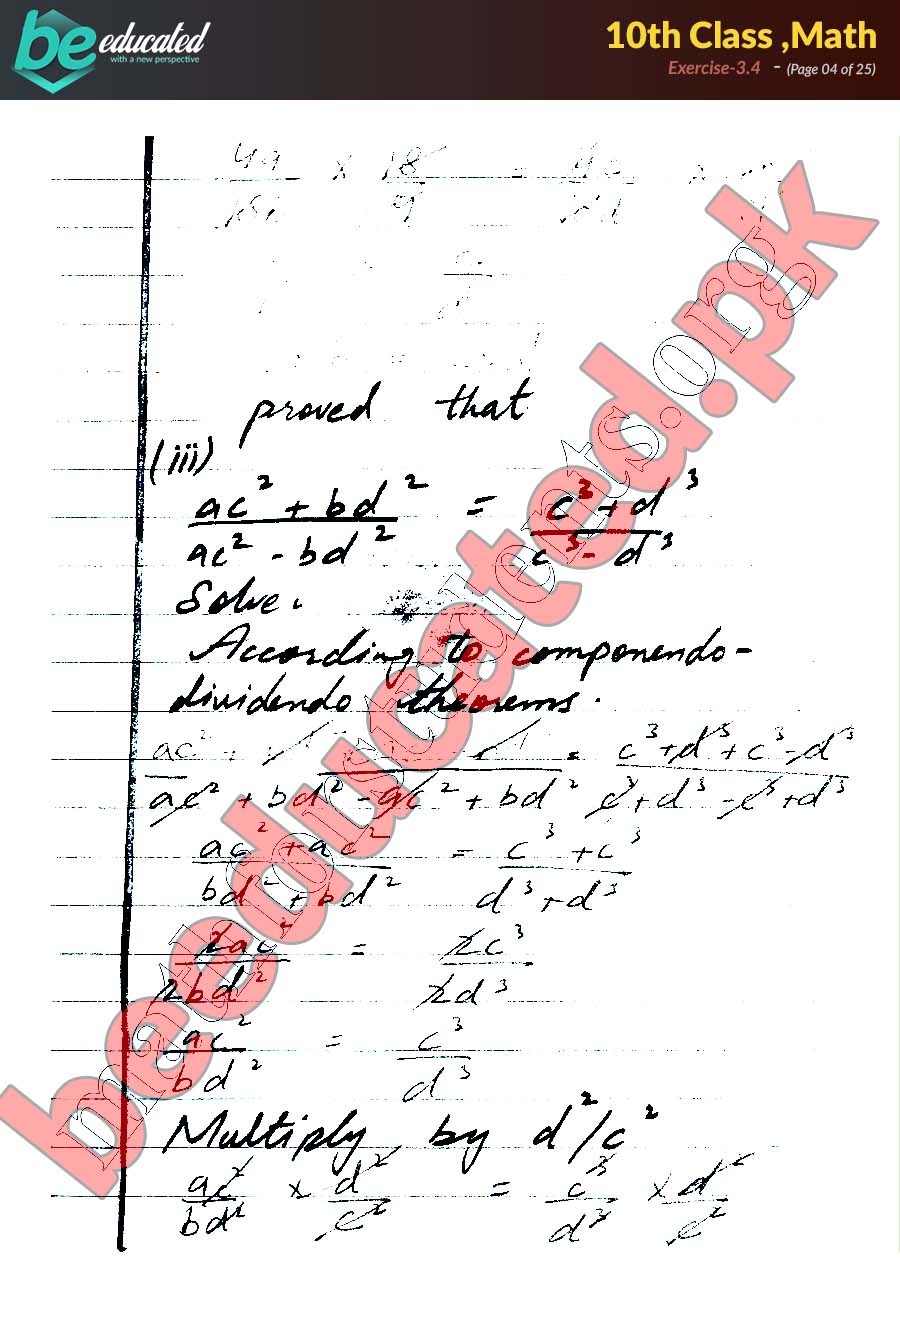 be educated
with a new perspective
10th Class ,Math
Exercise-3.4 - (Page 04 of 25)
4a × 18 =
proved that
(iii)
ac² + bd² / ac² - bd² = c³ + d³ / c³ - d³
Solve.
According to componendo-
dividendo theorems.
ac² + = c³ + d³ + c³ - d³
ac² + bd² - ac² + bd² c³ + d³ - c³ + d³
ac² + ac² / bd² + bd² = c³ + c³ / d³ + d³
2ac² / 2bd² = 2c³ / 2d³
ac² / bd² = c³ / d³
Multiply by d²/c²
ac² / bd² × d² / c² = c³ / d³ × d² / c²
beeducated.pk